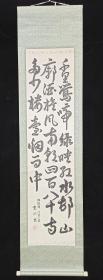 千里鶯啼綠映紅水邨山
郭酒旗風南朝四百八十寺
多少樓臺烟雨中